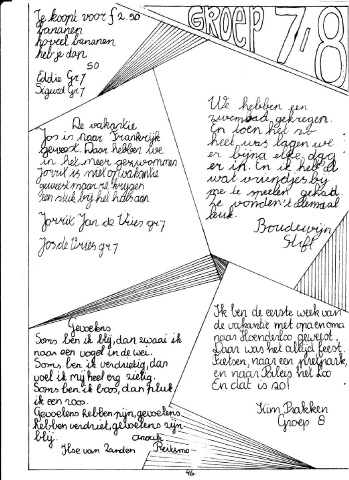 Je koopt voor f 2.50
bananen
hoeveel bananen
heb je dan
50
Eddie Gr 7
Sigurd Gr 7
GROEP 7-8
De vakantie
Jos is naar Frankrijk
geweest. Daar hebben we
in het meer gezwommen
Jorrit is met op vakantie
geweest maar we krijgen
een stuk bij het
Jorrit Jan de Vries gr 7
Jos de Vries gr 7
We hebben een
zwembad gekregen.
En toen het zo
heet was lagen we
er bijna elke dag
er in. En ik heb al
wat vriendjes bij
me te spelen gehad
ze vonden 't allemaal
leuk.
Boudewijn
Gevoelens
Soms ben ik blij, dan zwaai ik
naar een vogel in de wei.
Soms ben ik verdrietig, dan
voel ik mij heel erg zielig.
Soms ben ik boos, dan pluk
ik een roos.
Gevoelens hebben pijn, gevoelens
hebben verdriet, gevoelens zijn
blij.
Anouk
Ilse van Zanden
Ik ben de eerste week van
de vakantie met opa en oma
naar Hoenderloo geweest.
Daar was het altijd feest
Fietsen, naar een speelpark,
en naar Paleis het Loo
En dat is zo!
Kim Bakken
Groep 8
46